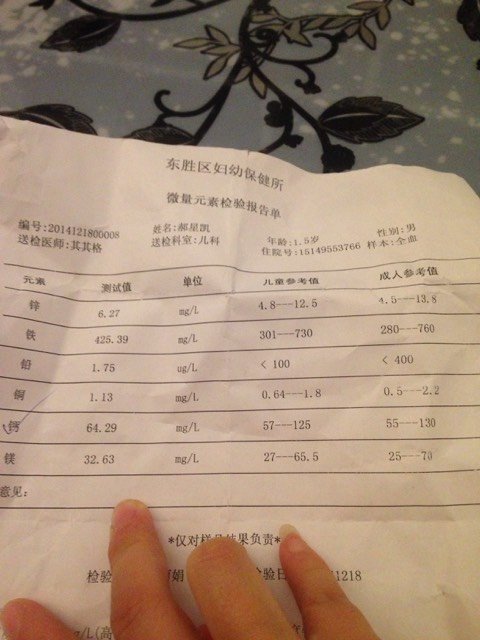 东胜区妇幼保健所
微量元素检验报告单
编号:2014121800008 姓名:郝星凯 年龄:1.5岁 性别:男
送检医师:其其格 送检科室:儿科 住院号:15149553766 样本:全血
元素 测试值 单位 儿童参考值 成人参考值
锌 6.27 mg/L 4.8---12.5 4.5---13.8
铁 425.39 mg/L 301---730 280---760
铅 1.75 ug/L < 100 < 400
铜 1.13 mg/L 0.64---1.8 0.5---2.2
钙 64.29 mg/L 57---125 55---130
镁 32.63 mg/L 27---65.5 25---70
意见:
*仅对样 结果负责*
检验 娟 检验日 1218
g/L(高